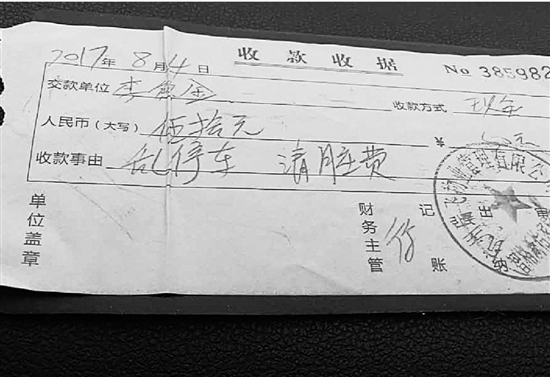 收款收据
2017年8月4日 No 385982
交款单位 李 收款方式 现金
人民币(大写) 伍拾元
收款事由 乱停车 清脏费
单位盖章 财务主管 记账 出 审
管理有限公